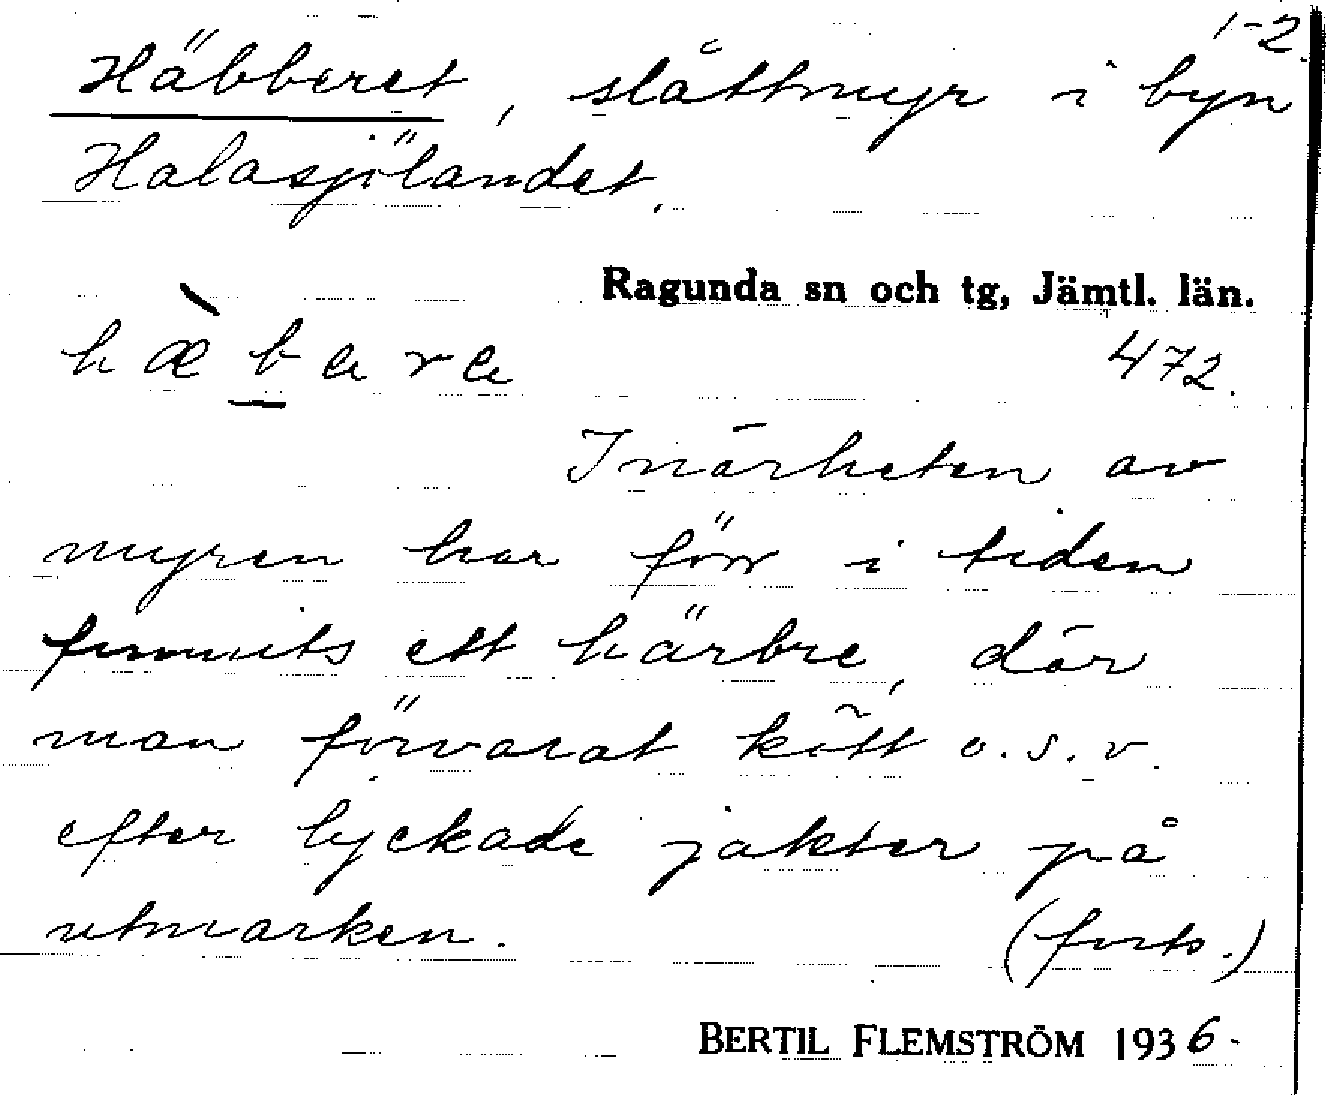 1-2
Häbberet, slåttmyr i byn
Halasjölandet.
Ragunda sn och tg, Jämtl. län.
hæ̀b̲ɐrɐ
472.
I närheten av
myren har förr i tiden
funnits ett härbre, där
man förvarat kött o.s.v.
efter lyckade jakter på
utmarken. (forts.)
BERTIL FLEMSTRÖM 1936.